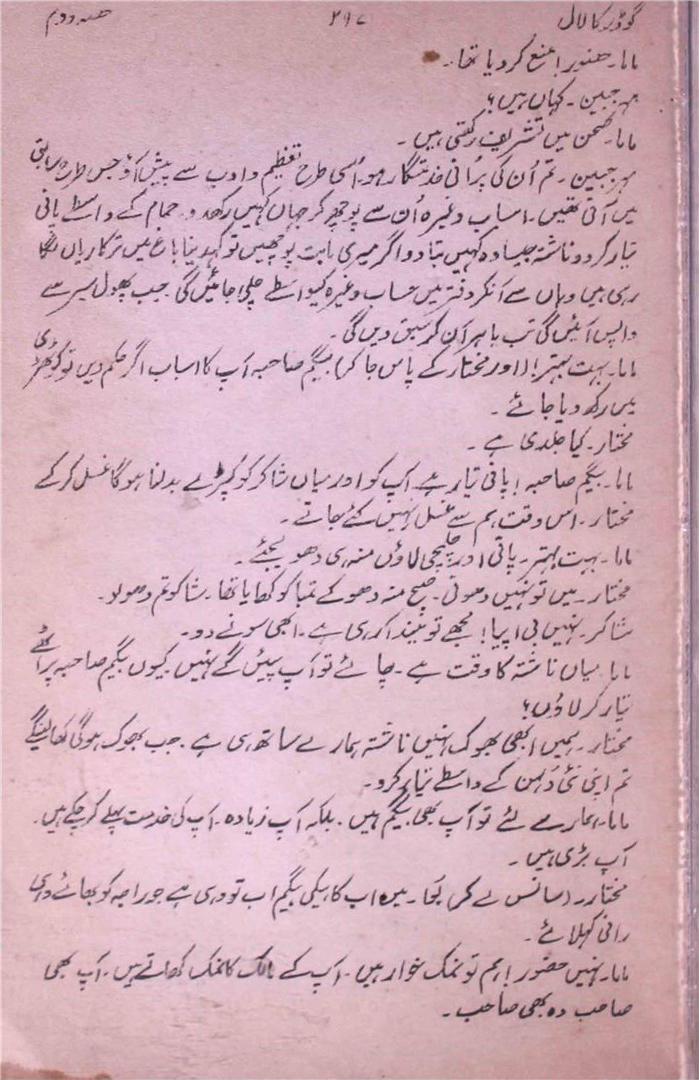 گوڈر کا لال ۲۹۷ حصہ دوم
ماما۔ حضور! منع کر دیا تھا۔
مہ جبین۔ کہاں ہیں؟
ماما۔ صحن میں تشریف رکھتی ہیں۔
مہ جبین۔ تم اُن کی پُرانی خدمتگار ہو۔ اُسی طرح تعظیم و ادب سے پیش آؤ جس طرح سابق
میں آتی تھیں۔ اسباب وغیرہ اُن سے پوچھ کر جہاں کہیں رکھدو۔ حمام کے واسطے پانی
تیار کر دو ناشتہ جیسا وہ کہیں بتا دو اگر میری بابت پوچھیں تو کہدینا باغ میں ترکاریاں لگا
رہی ہیں وہاں سے آنکر دفتر میں حساب وغیرہ کیواسطے چلی جائیں گی۔ جب پھول سیر سے
واپس آئیں گی تب باہر آن کر سبق دیں گی۔
ماما۔ بہت بہتر! (اور مختار کے پاس جا کر) بیگم صاحبہ آپ کا اسباب اگر حکم دیں تو کوٹھڑی
میں رکھ دیا جائے۔
مختار۔ کیا جلدی ہے۔
ماما۔ بیگم صاحبہ! پانی تیار ہے۔ آپ کو اور میاں شاکر کو کپڑے بدلنا ہوگا غسل کر کے
مختار۔ اس وقت ہم سے غسل نہیں کئے جاتے۔
ماما۔ بہت بہتر۔ پانی اور چلمچی لاؤں منہ ہی دھو لیجئے۔
مختار۔ میں تو نہیں دھوتی۔ صبح منہ دھو کے تمباکو کھایا تھا۔ شاکر تم دھولو۔
شاکر۔ نہیں بی اپیا! مجھے تو نیند آ رہی ہے۔ ابھی سونے دو۔
ماما۔ میاں ناشتہ کا وقت ہے۔ چائے تو آپ پیئں گے نہیں کیوں بیگم صاحبہ پراٹھے
تیار کر لاؤں؟
مختار۔ ہمیں ابھی بھوک نہیں ناشتہ ہمارے ساتھ ہی ہے۔ جب بھوک ہوگی کھا لینگے
تم اپنی نئی دلہن کے واسطے تیار کرو۔
ماما۔ ہمارے لئے تو آپ بھی بیگم ہیں۔ بلکہ آپ زیادہ۔ آپ کی خدمت پہلے کر چکے ہیں۔
آپ بڑی ہیں۔
مختار۔ (سانس لے کر) بُوا۔ میں اب کاہیکی بیگم اب تو وہی ہے جو راجہ کو بھائے وہی
رانی کہلائے۔
ماما۔ نہیں حضور! ہم تو نمک خوار ہیں۔ آپ کے مالک کا نمک کھاتے ہیں۔ آپ بھی
صاحب وہ بھی صاحب۔